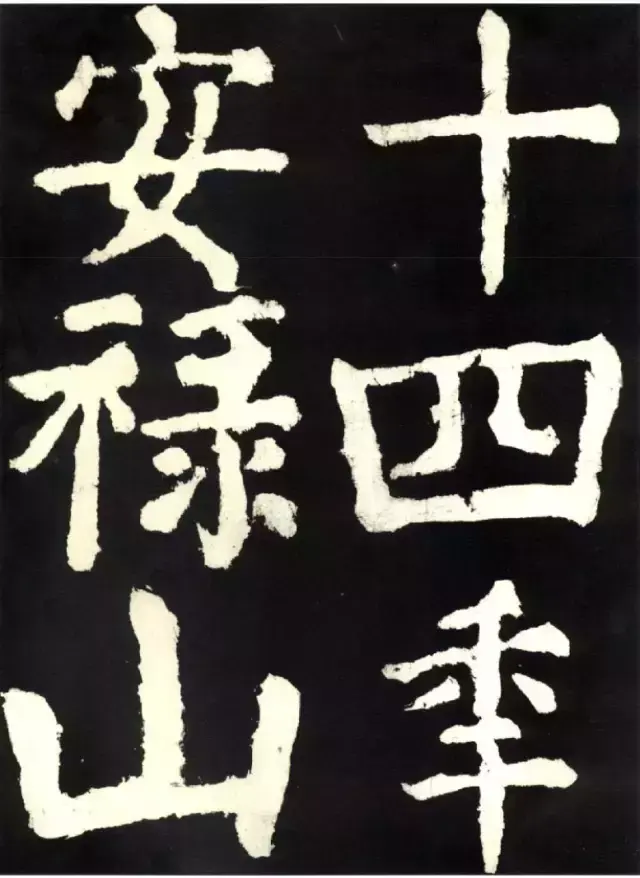 十四秊
安禄山